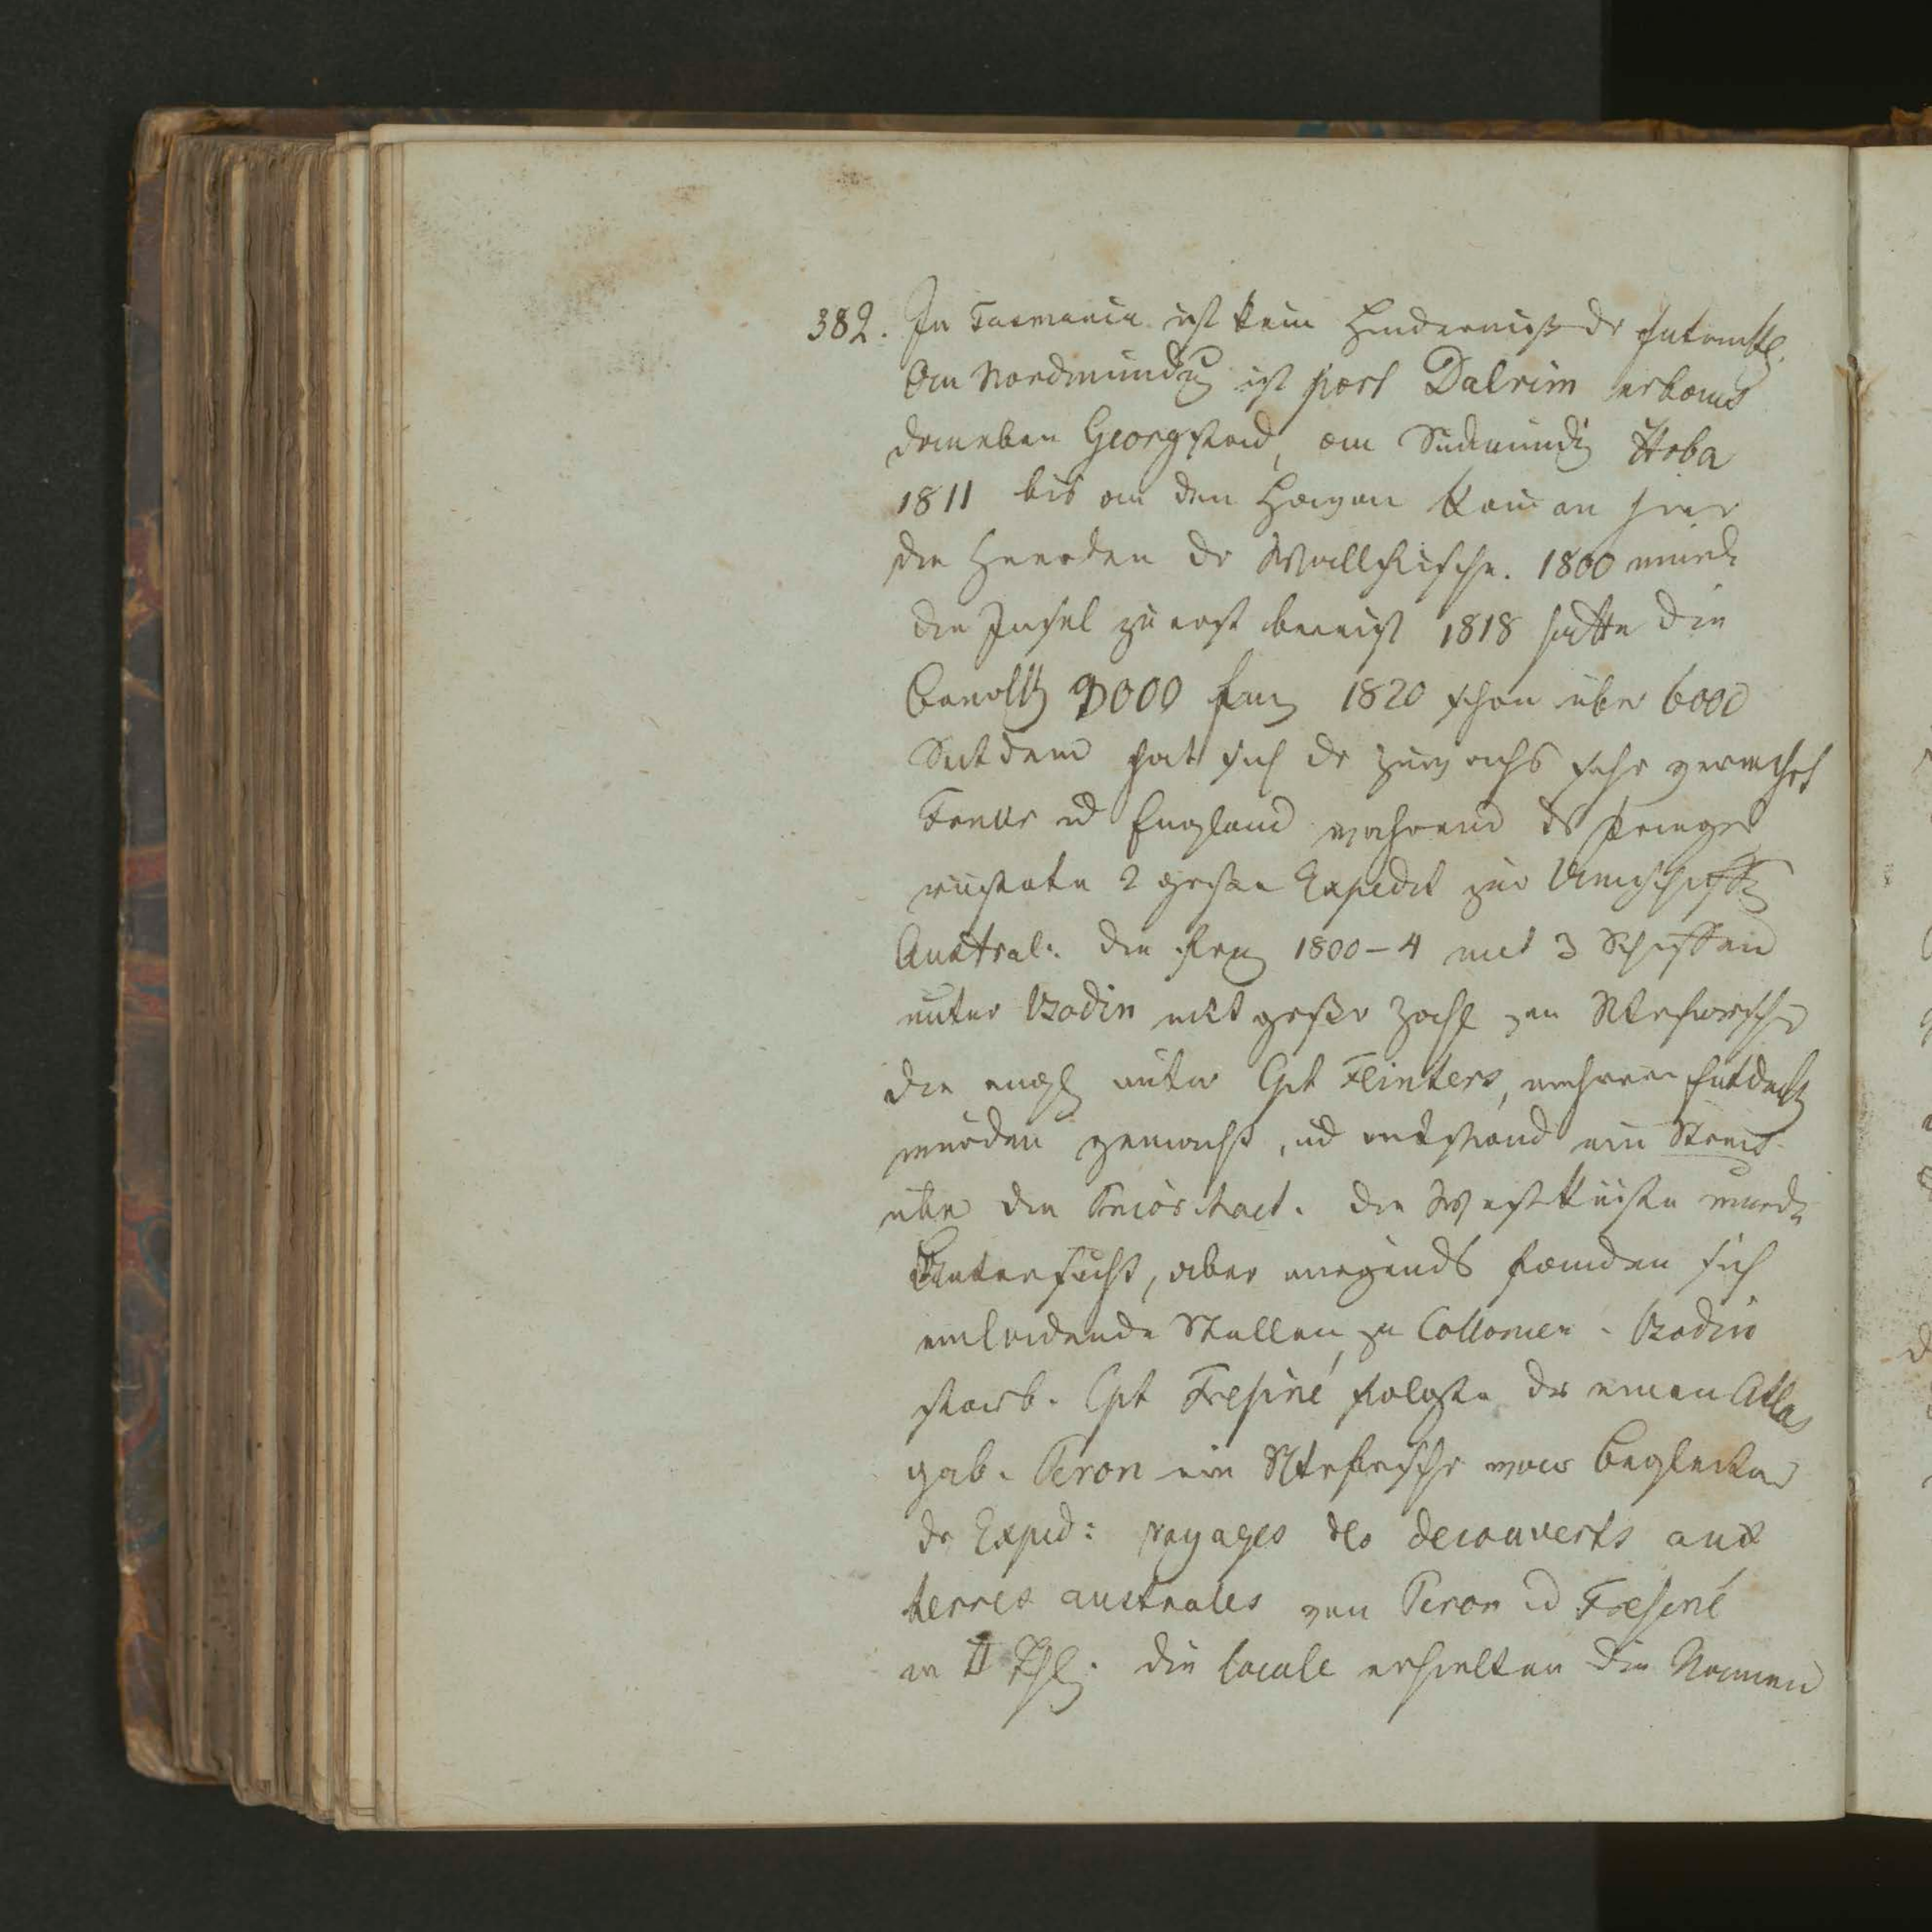 382. In Tasmania ist kein Hinderniss dr
Am Nordmündg ist port Dalrim erbaut
daneben Georgstad, am Südmündg Hoba
1811 bis an den kamen hier
die Heerden dr Wallfische. 1800 wurde
die Insel zu erst bereist 1818 hatte die
Bevolkg 3000 1820 schon über 6000
Seitdem hat sich dr Zuwachs sehr vermehrt
Frankr ud England während ds Krieges
rüsteten 2 grosse Expedit zur Umschiffg
Austral: die franz 1800-4 mit 3 Schiffen
unter Bodin mit großer Zahl von Ntrforscher
die engl unter Cpt Flinters, mehrere Entdeckg
wurden gemacht, ud entstand ein Streit
über die Priorität. Die Westküste wurde
Untersucht, aber nirgends fanden sich
einladende Stellen zu Collonien. Bodin
starb. Cpt Fresiné folgte der einen Atlas
gab. Peron ein Ntrforscher war Begleiter
dr Exped: voyages des decouverts aux
terres australes von Peron ud Fresiné
in II Thl. die locale erhielten die Namen